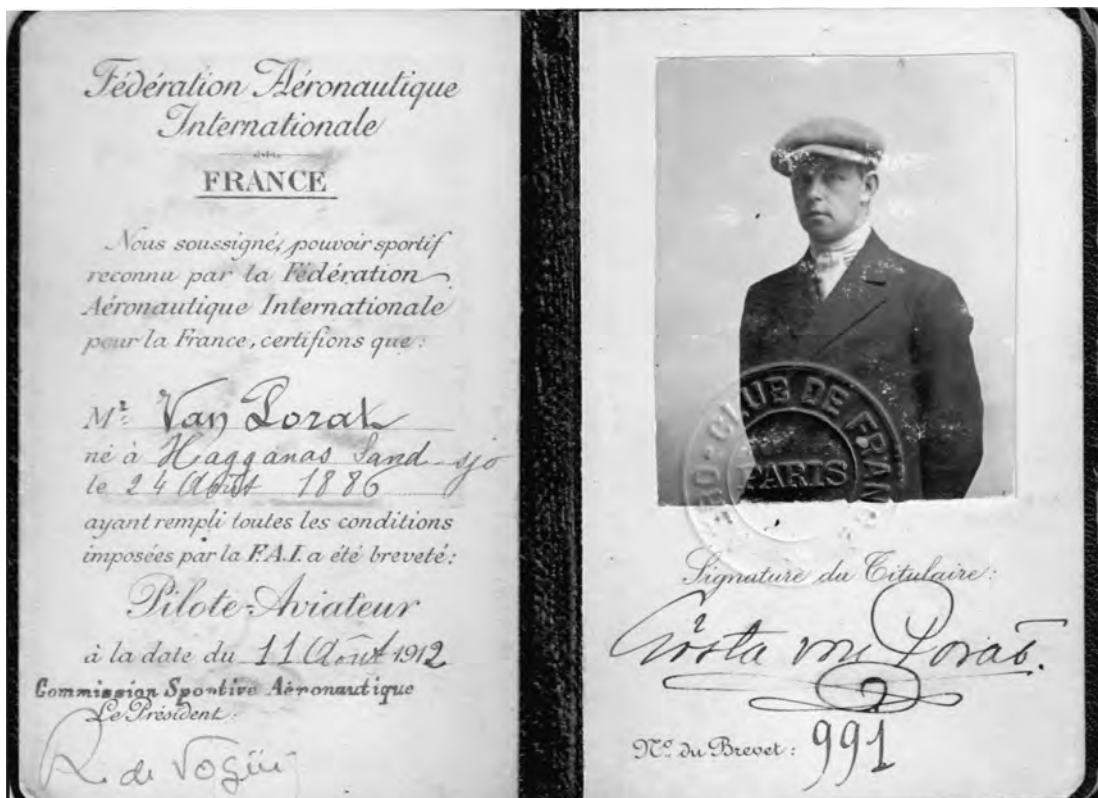 Fédération Aéronautique
Internationale
FRANCE
Nous soussigné, pouvoir sportif
reconnu par la Fédération
Aéronautique Internationale
pour la France, certifions que :
Mr Van Porat
né à Hagganas Sand-sjo
le 24 Août 1886
ayant rempli toutes les conditions
imposées par la F.A.I. a été breveté :
Pilote-Aviateur
à la date du 11 Août 1912
Commission Sportive Aéronautique
Le Président :
R. de Vogüé
RO-CLUB DE FRAN
PARIS
Signature du Titulaire :
Gösta von Porat.
No du Brevet : 991